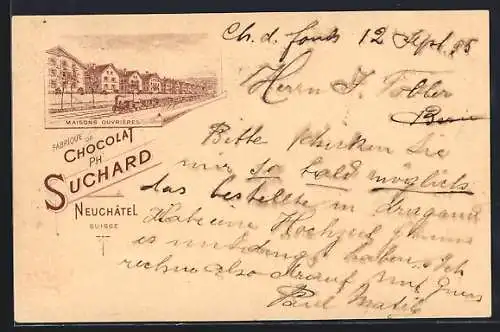 MAISONS OUVRIÈRES
FABRIQUE DE
CHOCOLAT
PH
SUCHARD
NEUCHÂTEL
SUISSE
Ch. d. fonds 12 Sept. 95
Herrn J. Tobler
Bern
Bitte schicken Sie
mir so bald möglich
das bestellte in
Habe eine Hochzeit
es unbedingt haben. Ich
rechne also darauf mit Gruss
Paul